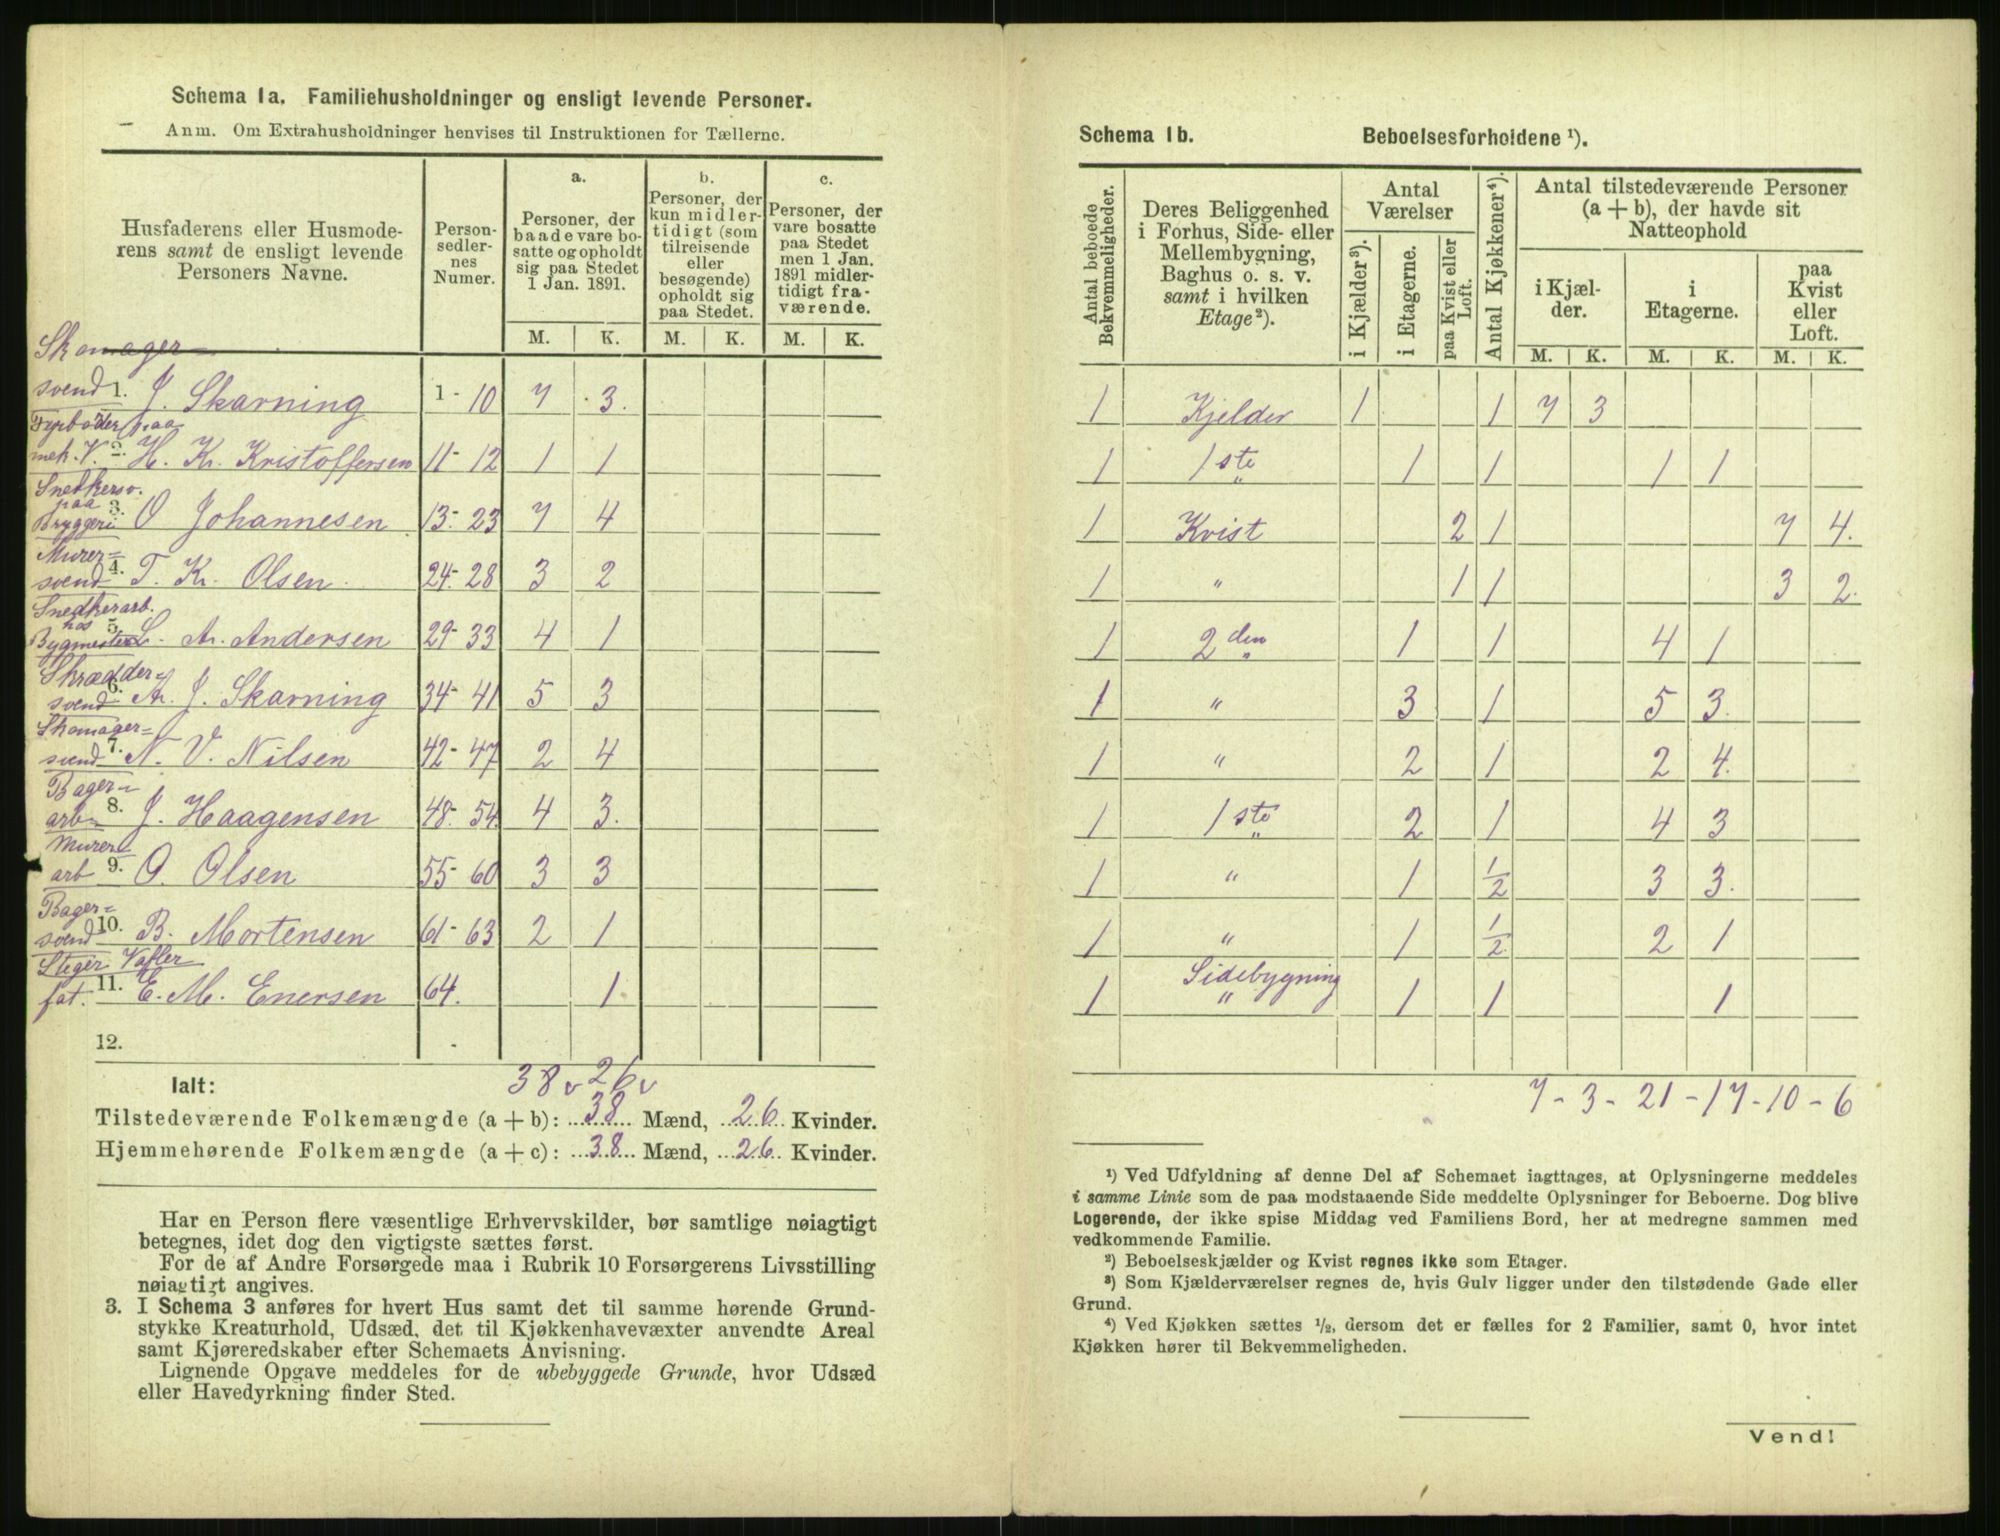 Schema 1a. Familiehusholdninger og ensligt levende Personer.
Anm. Om Extrahusholdninger henvises til Instruktionen for Tællerne.
Husfaderens eller Husmode-
rens samt de ensligt levende
Personers Navne.
Person-
sedler-
nes
Numer.
a.
Personer, der
baade vare bo-
satte og opholdt
sig paa Stedet
1 Jan. 1891.
b.
Personer, der
kun midler-
tidigt (som
tilreisende
eller
besøgende)
opholdt sig
paa Stedet.
c.
Personer, der
vare bosatte
paa Stedet
men 1 Jan.
1891 midler-
tidigt fra-
værende.
M. K. M. K. M. K.
Skomager-
svend 1. J. Skarning 1-10 7 3.
Fyrbøder paa
mek. V. 2. H. Kr. Kristoffersen 11-12 1 1
Snetkersv.
paa
Bryggeri 3. O Johannesen 13-23 7 4
Murer=
svend 4. T. Kr. Olsen 24-28 3 2
Snedkerarb.
hos
Bygmester 5. L. Ar. Andersen 29-33 4 1
Skrædder=
svend 6. Ar. J. Skarning 34-41 5 3
Skomager=
svend 7. N. V. Nilsen 42-47 2 4
Bager=
arb 8. J. Haagensen 48-54. 4 3.
Murer
arb 9. O. Olsen 55-60 3 3
Bager=
svend 10. B. Mortensen 61-63 2 1
fat. 11. E. M. Enersen 64. 1
12. -
Ialt: 38 v 26 v
Tilstedeværende Folkemængde (a + b): 38 Mænd, 26 Kvinder.
Hjemmehørende Folkemængde (a + c): 38 Mænd, 26 Kvinder.
Har en Person flere væsentlige Erhvervskilder, bør samtlige nøiagtigt
betegnes, idet dog den vigtigste sættes først.
For de af Andre Forsørgede maa i Rubrik 10 Forsørgerens Livsstilling
nøiagtigt angives.
3. I Schema 3 anføres for hvert Hus samt det til samme hørende Grund-
stykke Kreaturhold, Udsæd, det til Kjøkkenhavevæxter anvendte Areal
samt Kjøreredskaber efter Schemaets Anvisning.
Lignende Opgave meddeles for de ubebyggede Grunde, hvor Udsæd
eller Havedyrkning finder Sted.
Schema 1b. Beboelsesforholdene ¹).
Antal beboede
Bekvemmeligheder.
Deres Beliggenhed
i Forhus, Side- eller
Mellembygning,
Baghus o. s. v.
samt i hvilken
Etage²).
Antal
Værelser
i Kjælder³).
i Etagerne.
paa Kvist eller
Loft.
Antal Kjøkkener⁴).
Antal tilstedeværende Personer
(a + b), der havde sit
Natteophold
i Kjæl-
der.
i
Etagerne.
paa
Kvist
eller
Loft.
M. K. M. K. M. K.
1 Kjelder 1 1 7 3
1 1 ste 1 1 1 1
1 Kvist 2 1 7 4.
1 " 1 1 3 2.
1 2 den 1 1 4 1
1 " 3 1 5 3.
1 " 2 1 2 4.
1 1 ste 2 1 4 3
1 " 1 1/2 3 3.
1 " 1 1/2 2 1
1 Sidebygning " 1 1 1
7 - 3 - 21 - 17 - 10 - 6
¹) Ved Udfyldning af denne Del af Schemaet iagttages, at Oplysningerne meddeles
i samme Linie som de paa modstaaende Side meddelte Oplysninger for Beboerne. Dog blive
Logerende, der ikke spise Middag ved Familiens Bord, her at medregne sammen med
vedkommende Familie.
²) Beboelseskjælder og Kvist regnes ikke som Etager.
³) Som Kjælderværelser regnes de, hvis Gulv ligger under den tilstødende Gade eller
Grund.
⁴) Ved Kjøkken sættes ½, dersom det er fælles for 2 Familier, samt 0, hvor intet
Kjøkken hører til Bekvemmeligheden.
Vend!